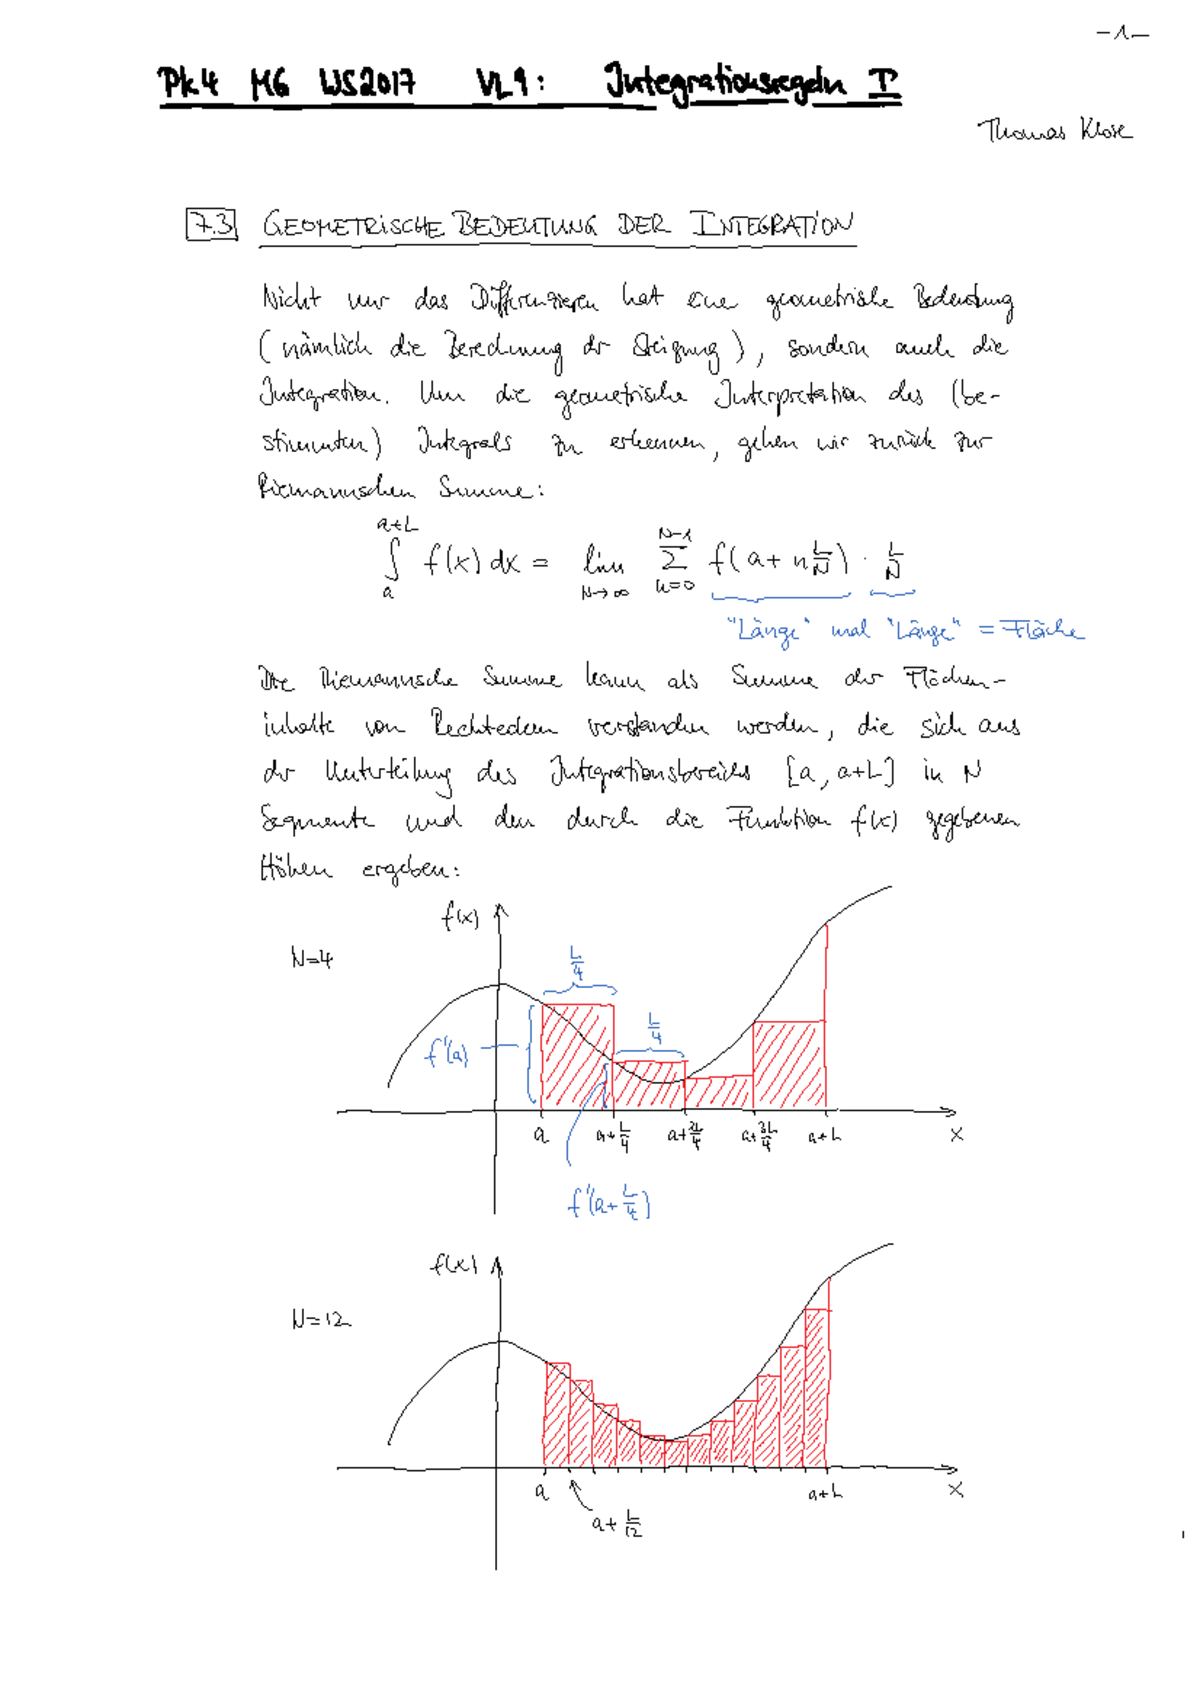 -1-
Pk4 M6 WS2017 VL9: Integrationsregeln I
Thomas Klose
7.3 GEOMETRISCHE BEDEUTUNG DER INTEGRATION
Nicht nur das Differenzieren hat eine geometrische Bedeutung
(nämlich die Berechnung der Steigung), sondern auch die
Integration. Um die geometrische Interpretation des (be-
stimmten) Integrals zu erkennen, gehen wir zurück zur
Riemannschen Summe:
∫_a^{a+L} f(x) dx = lim_{N→∞} Σ_{n=0}^{N-1} f(a + n L/N) · L/N
"Länge" mal "Länge" = Fläche
Die Riemannsche Summe kann als Summe der Flächen-
inhalte von Rechtecken verstanden werden, die sich aus
der Unterteilung des Integrationsbereichs [a, a+L] in N
Segmente und den durch die Funktion f(x) gegebenen
Höhen ergeben:
f(x)
N=4
L/4
L/4
f(a)
a a+L/4 a+2L/4 a+3L/4 a+L x
f(a+L/4)
f(x)
N=12
a a+L x
a+L/12